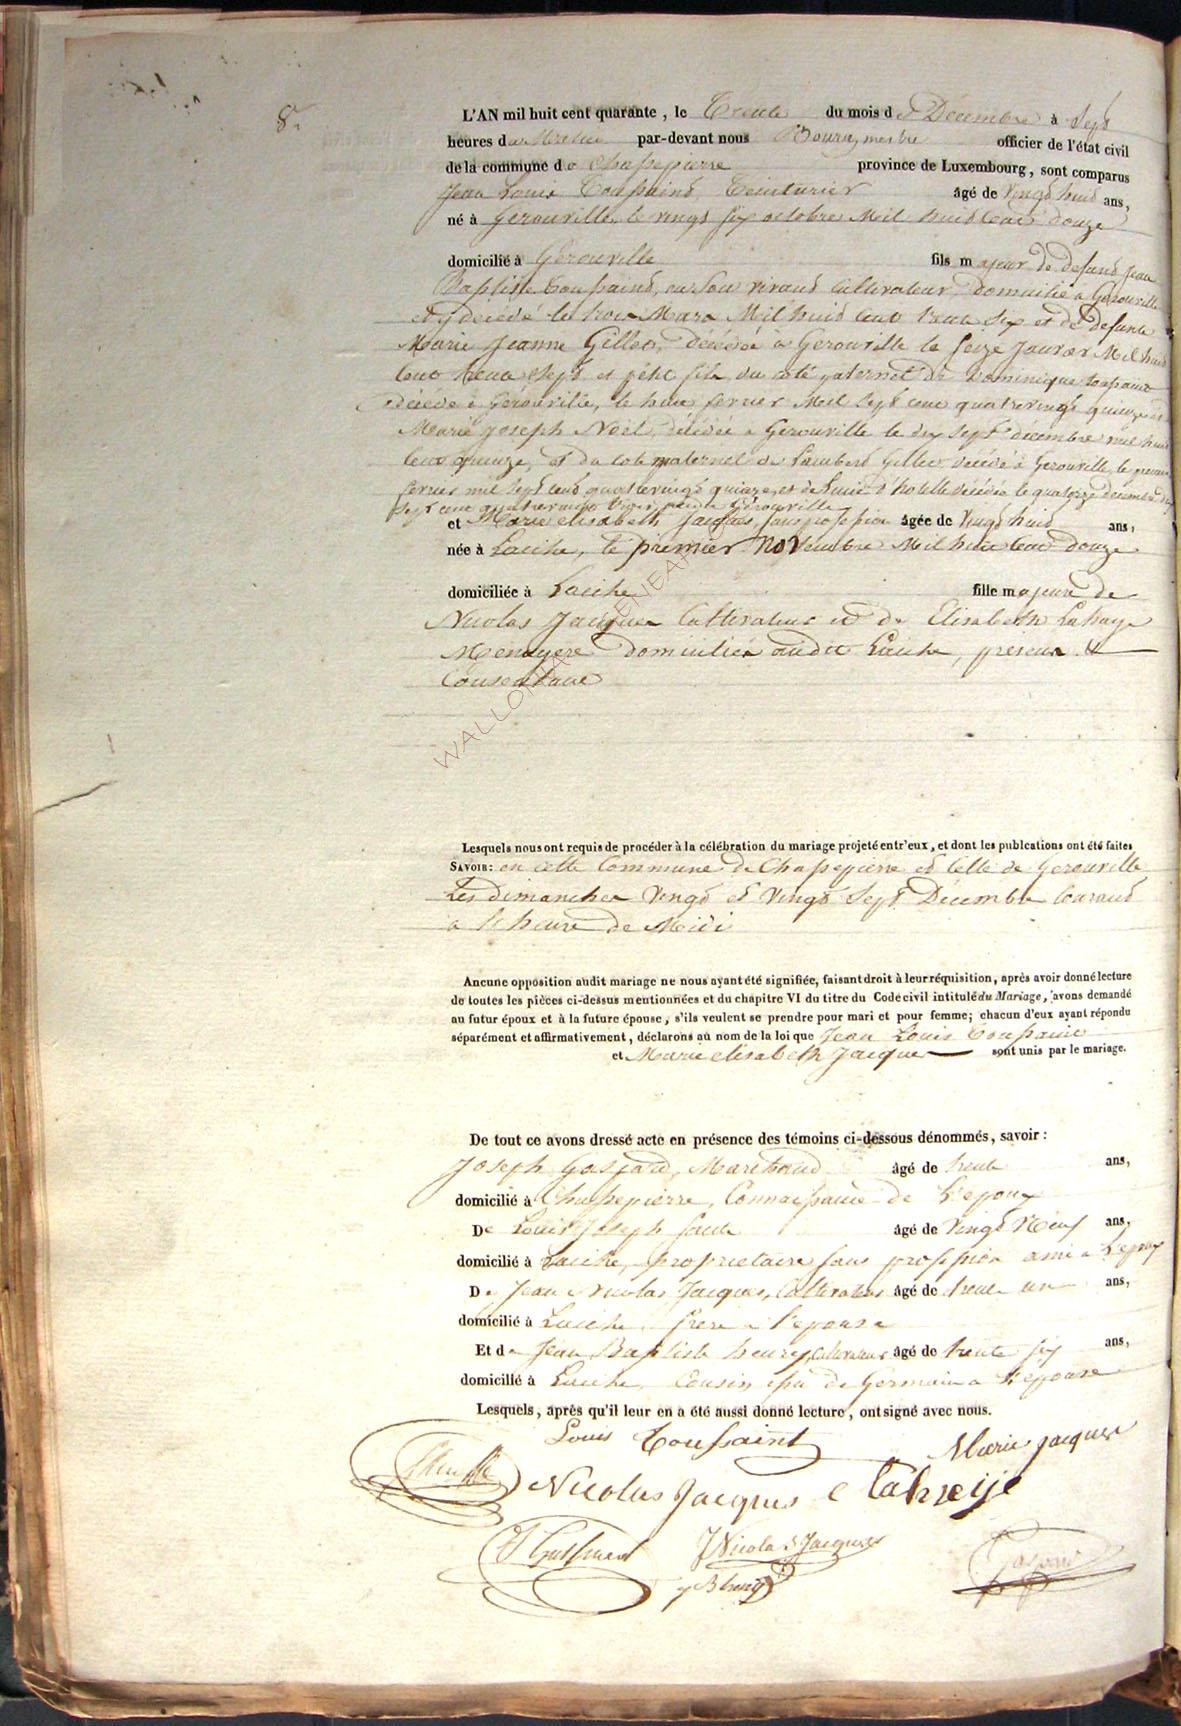 8.
L'AN mil huit cent quarante, le Trente du mois de Decembre à Sept
heures du Matin par-devant nous Bourgmestre officier de l'état civil
de la commune de Chassepierre province de Luxembourg, sont comparus
Jean Louis Toussaint, Teinturier âgé de vingt huit ans,
né à Gerouville, le vingt six octobre Mil huit Cent douze
domicilié à Gerouville fils majeur de defunt Jean
Baptiste Toussaint, en son vivant Cultivateur Domicilié à Gerouville
et y decedé le trois Mars Mil huit Cent trente six et de defunte
Marie Jeanne Gillet, décédée à Gerouville le Seize Janvier Mil huit
Cent trente Sept et petit fils du coté paternel de Dominique toussaint
décédé à Gérouville, le huit fevrier Mil Sept cent quatrevingt quinze et
Marie Joseph Noël, décédée à Gerouville le dix Sept décembre mil huit
Cent quinze, et du coté maternel de Lambert Gillet décédé à Gerouville, le premier
fevrier mil Sept Cent quatrevingt quinze, et de Lucie décédée le quatorze decembre
Sept cent quatrevingt Gérouville
et Marie elisabeth Jacques, sans profession âgée de vingt huit ans,
née à Laiche, le premier Novembre Mil huit Cent douze
domiciliée à Laiche fille majeure de
Nicolas Jacques Cultivateur et de Elisabeth Lahaye
Menagere domiciliés audit Laiche, presens &
Consentans
WALLONIA GENEA
Lesquels nous ont requis de procéder à la célébration du mariage projeté entr'eux, et dont les publcations ont été faites
SAVOIR: en cette Commune de Chassepierre et Celle de Gerouville
Les dimanches vingt et vingt Sept Décembre Courant
a l'heure de Midi
Ancune opposition audit mariage ne nous ayant été signifiée, faisant droit à leur réquisition, après avoir donné lecture
de toutes les pièces ci-dessus mentionnées et du chapitre VI du titre du Code civil intitulé du Mariage, avons demandé
au futur époux et à la future épouse, s'ils veulent se prendre pour mari et pour femme; chacun d'eux ayant répondu
séparément et affirmativement, déclarons au nom de la loi que Jean Louis Toussaint
et Marie elisabeth Jacques sont unis par le mariage.
De tout ce avons dressé acte en présence des témoins ci-dessous dénommés, savoir:
Joseph Gaspard, Marechand âgé de trente ans,
domicilié à Chassepierre, Connaissance de l'epoux
De Louis Joseph âgé de vingt Neuf ans,
domicilié à Laiche, proprietaire sans profession ami a l'epoux
De Jean Nicolas Jacques, Cultivateur âgé de trente un ans,
domicilié à Laiche, frere a l'epouse
Et de Jean Baptiste henry, Cultivateur âgé de trente six ans,
domicilié à Laiche, Cousin issu de Germain a l'epouse
Lesquels, après qu'il leur en a été aussi donné lecture, ont signé avec nous.
Louis Toussaint Marie Jacques
Nicolas Jacques E Lahaije
JNicolas Jacques
JB henry